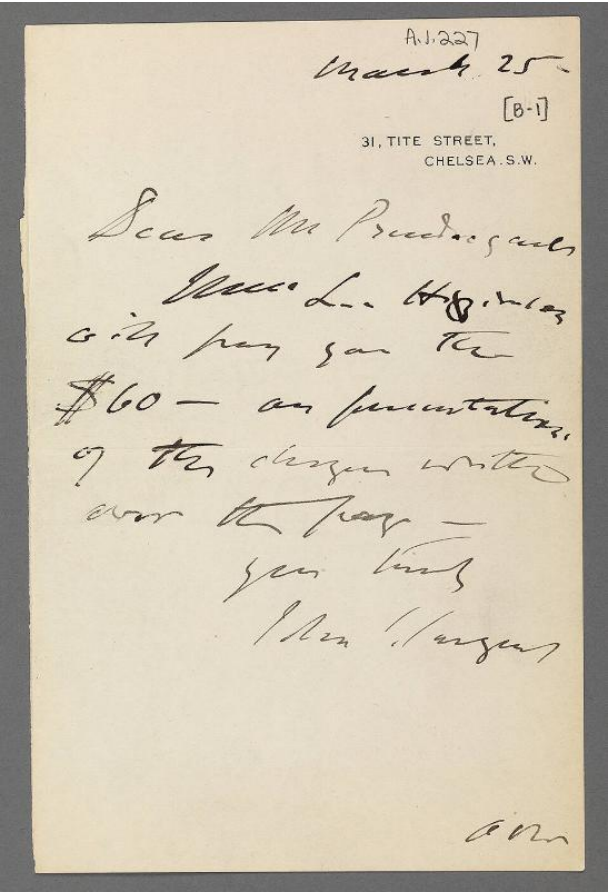 A.J.227
March 25 -
[B-1]
31, TITE STREET,
CHELSEA. S.W.
Dear Mr Prendergast
Lee Higginson
will pay you the
$60 — on presentation
of the cheque written
over the page —
yours truly
John S. Sargent
over